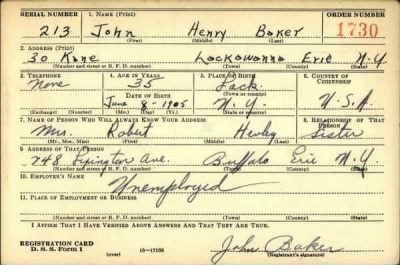 SERIAL NUMBER 1. NAME (Print) ORDER NUMBER
213 John Henry Baker 1730
(First) (Middle) (Last)
2. ADDRESS (Print)
30 Kane Lackawanna Erie N.Y.
(Number and street or R. F. D. number) (Town) (County) (State)
3. TELEPHONE 4. AGE IN YEARS 5. PLACE OF BIRTH 6. COUNTRY OF CITIZENSHIP
None 35 Lack.
DATE OF BIRTH (Town or county)
June 8-1905 N.Y. U.S.A
(Exchange) (Number) (Mo.) (Day) (Yr.) (State or country)
7. NAME OF PERSON WHO WILL ALWAYS KNOW YOUR ADDRESS 8. RELATIONSHIP OF THAT PERSON
Mrs. Robert Sister
(Mr., Mrs., Miss) (First) (Middle) (Last)
9. ADDRESS OF THAT PERSON
748 Ave. Buffalo Erie N.Y
(Number and street or R. F. D. number) (Town) (County) (State)
10. EMPLOYER'S NAME
Unemployed
11. PLACE OF EMPLOYMENT OR BUSINESS
(Number and street or R. F. D. number) (Town) (County) (State)
I AFFIRM THAT I HAVE VERIFIED ABOVE ANSWERS AND THAT THEY ARE TRUE.
REGISTRATION CARD
D. S. S. Form 1 (over) 16—17105 John Baker
(Registrant's signature)